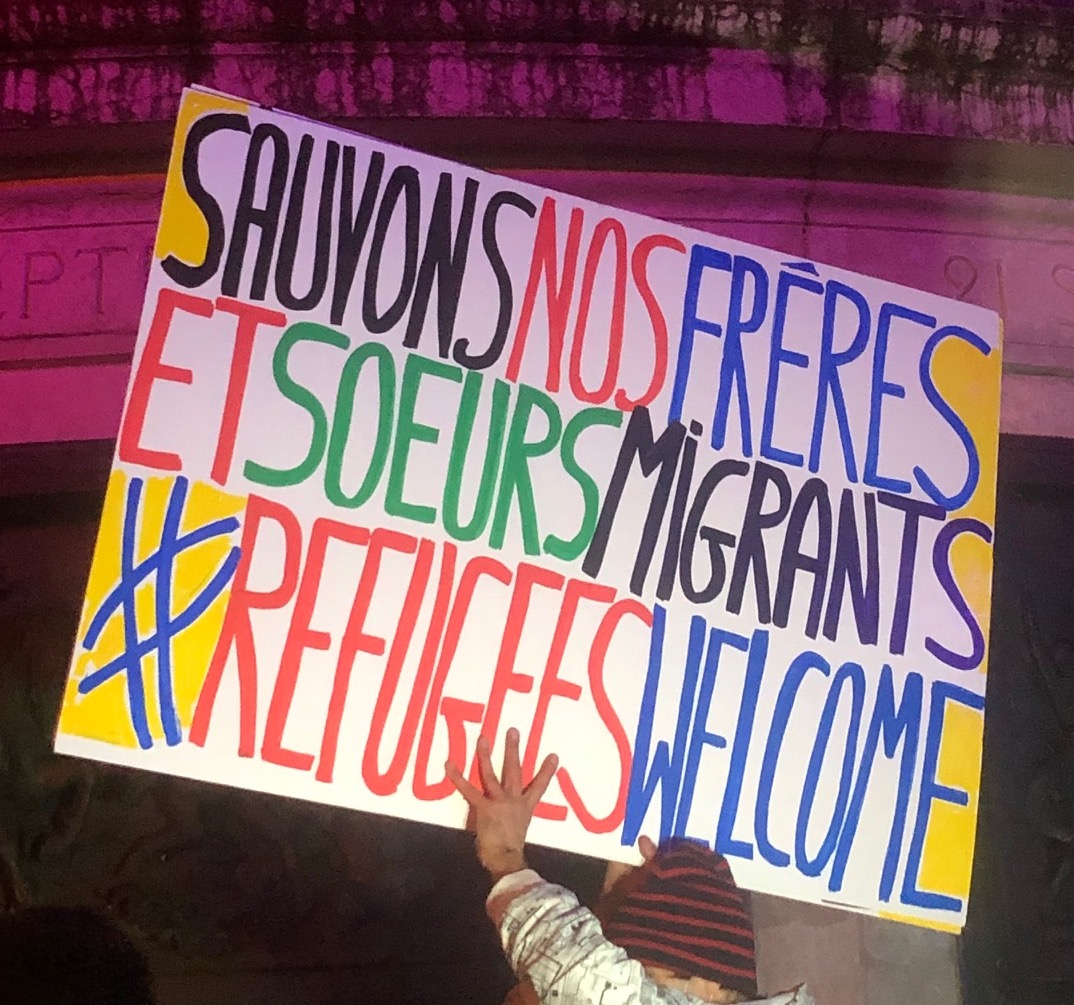 SAUVONS NOS FRÊRES
ET SOEURS MiGRANTS
#REFUGEES WELCOME